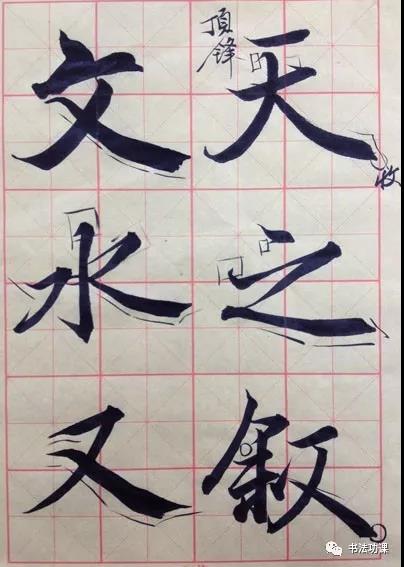 天之叙
文水又
頂锋
收
书法功课